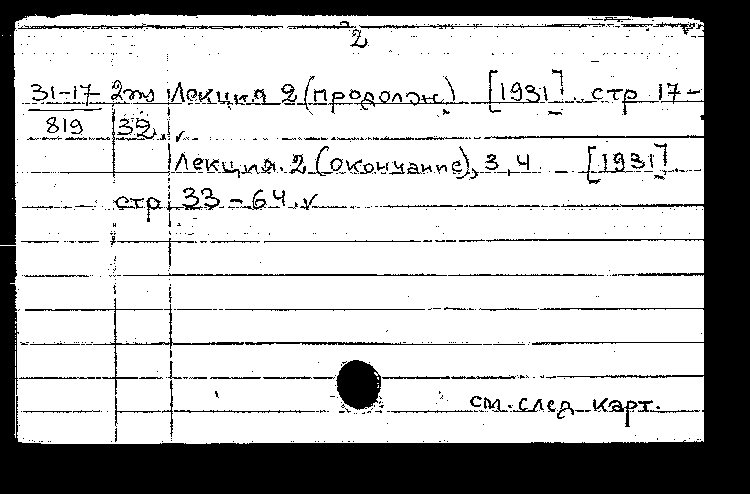 2
31-17 2жэ Лекция 2 (продолж). [1931]. стр 17-
819 32. v
Лекция. 2 (окончание), 3, 4 [1931]
стр. 33-64. v
см. след карт.